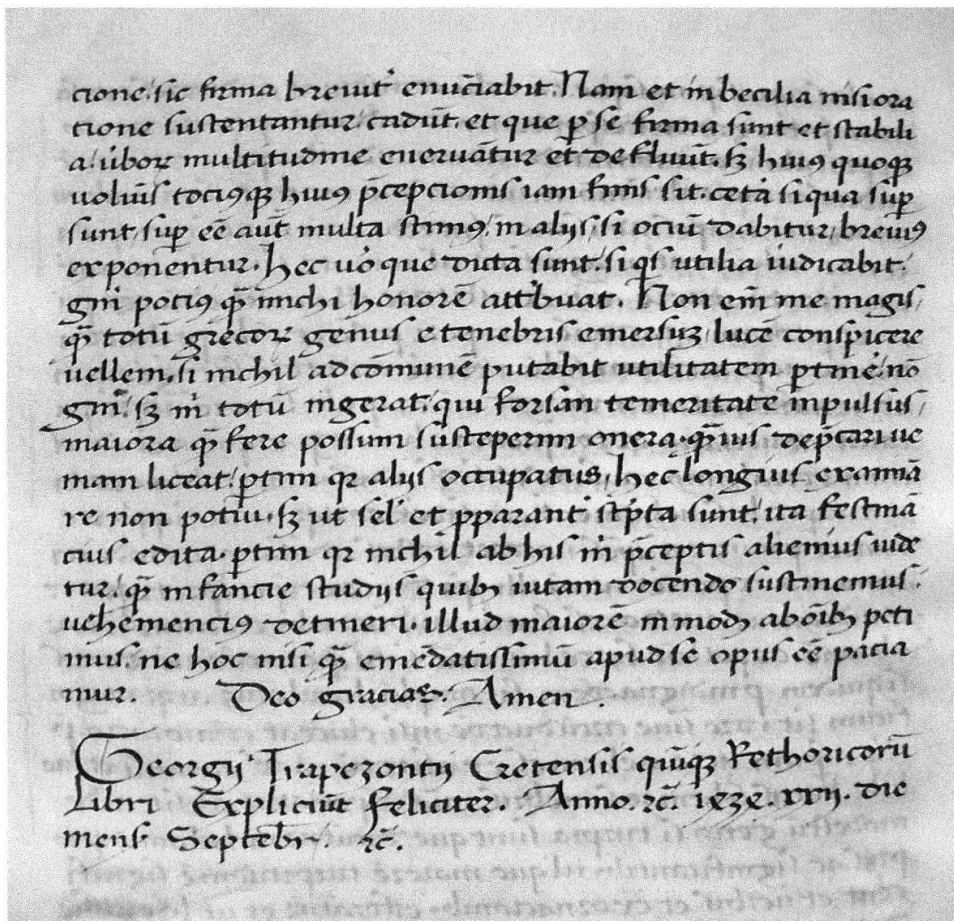 cione. sic firma breuit᷑ enūciabit. Nam et inbecilia nisi ora
tione sustentantur. cadūt. et que p̱ se firma sunt et stabili
a. ũboꝝ multitudine eneruātur et defluūt. sꝫ huiꝰ quoqꝫ
uolūis tociꝰqꝫ huiꝰ p̄cepcionis iam finis sit. cet̾a si qua suꝑ
sunt, suꝑ eē aūt multa scimꝰ, in alijs, si ociū dabitur, breuiꝰ
exponentur. hec ũo que dicta sunt. si qͥs utilia iudicabit.
pociꝰ qͣꝫ michi honorē att͛buat. Non eni̅ me magis,
qͣꝫ totū grecoꝝ genus e tenebris emersuꝫ, lucē conspicere
uellem. si nichil ad comunē putabit utilitatem ptin̾e, nō
sꝫ m̊ totū ingerat. qui forsan temeritate inpulsus,
maiora qͣꝫ fere possim susceperim onera. qͣꝫuis dep̄cari ue
niam liceat, ꝑtim qꝛ alijs occupatus, hec longius examiā
re non potui. sꝫ ut sel̾ et ꝑparant᷑ sc̾pta sunt, ita festinā
cius edita. ꝑtim qꝛ nichil ab his in p̄ceptis alienius uide
tur. qͣꝫ infancie studijs quibꝫ uitam docendo sustinemus.
uehemenciꝰ detineri. illud maiorē in modꝫ ab oı̅bꝫ peti
mus. ne hoc nisi qͣꝫ emēdatissimū apud se opus eē pacia
mur. Deo gracias. Amen.
Georgij Trapezontij Cretensis quı̅qꝫ Rethoricorū
Libri Expliciūt feliciter. Anno. ⁊c̄. xxij. die
mens̾ Septebr̾. ⁊c̄.